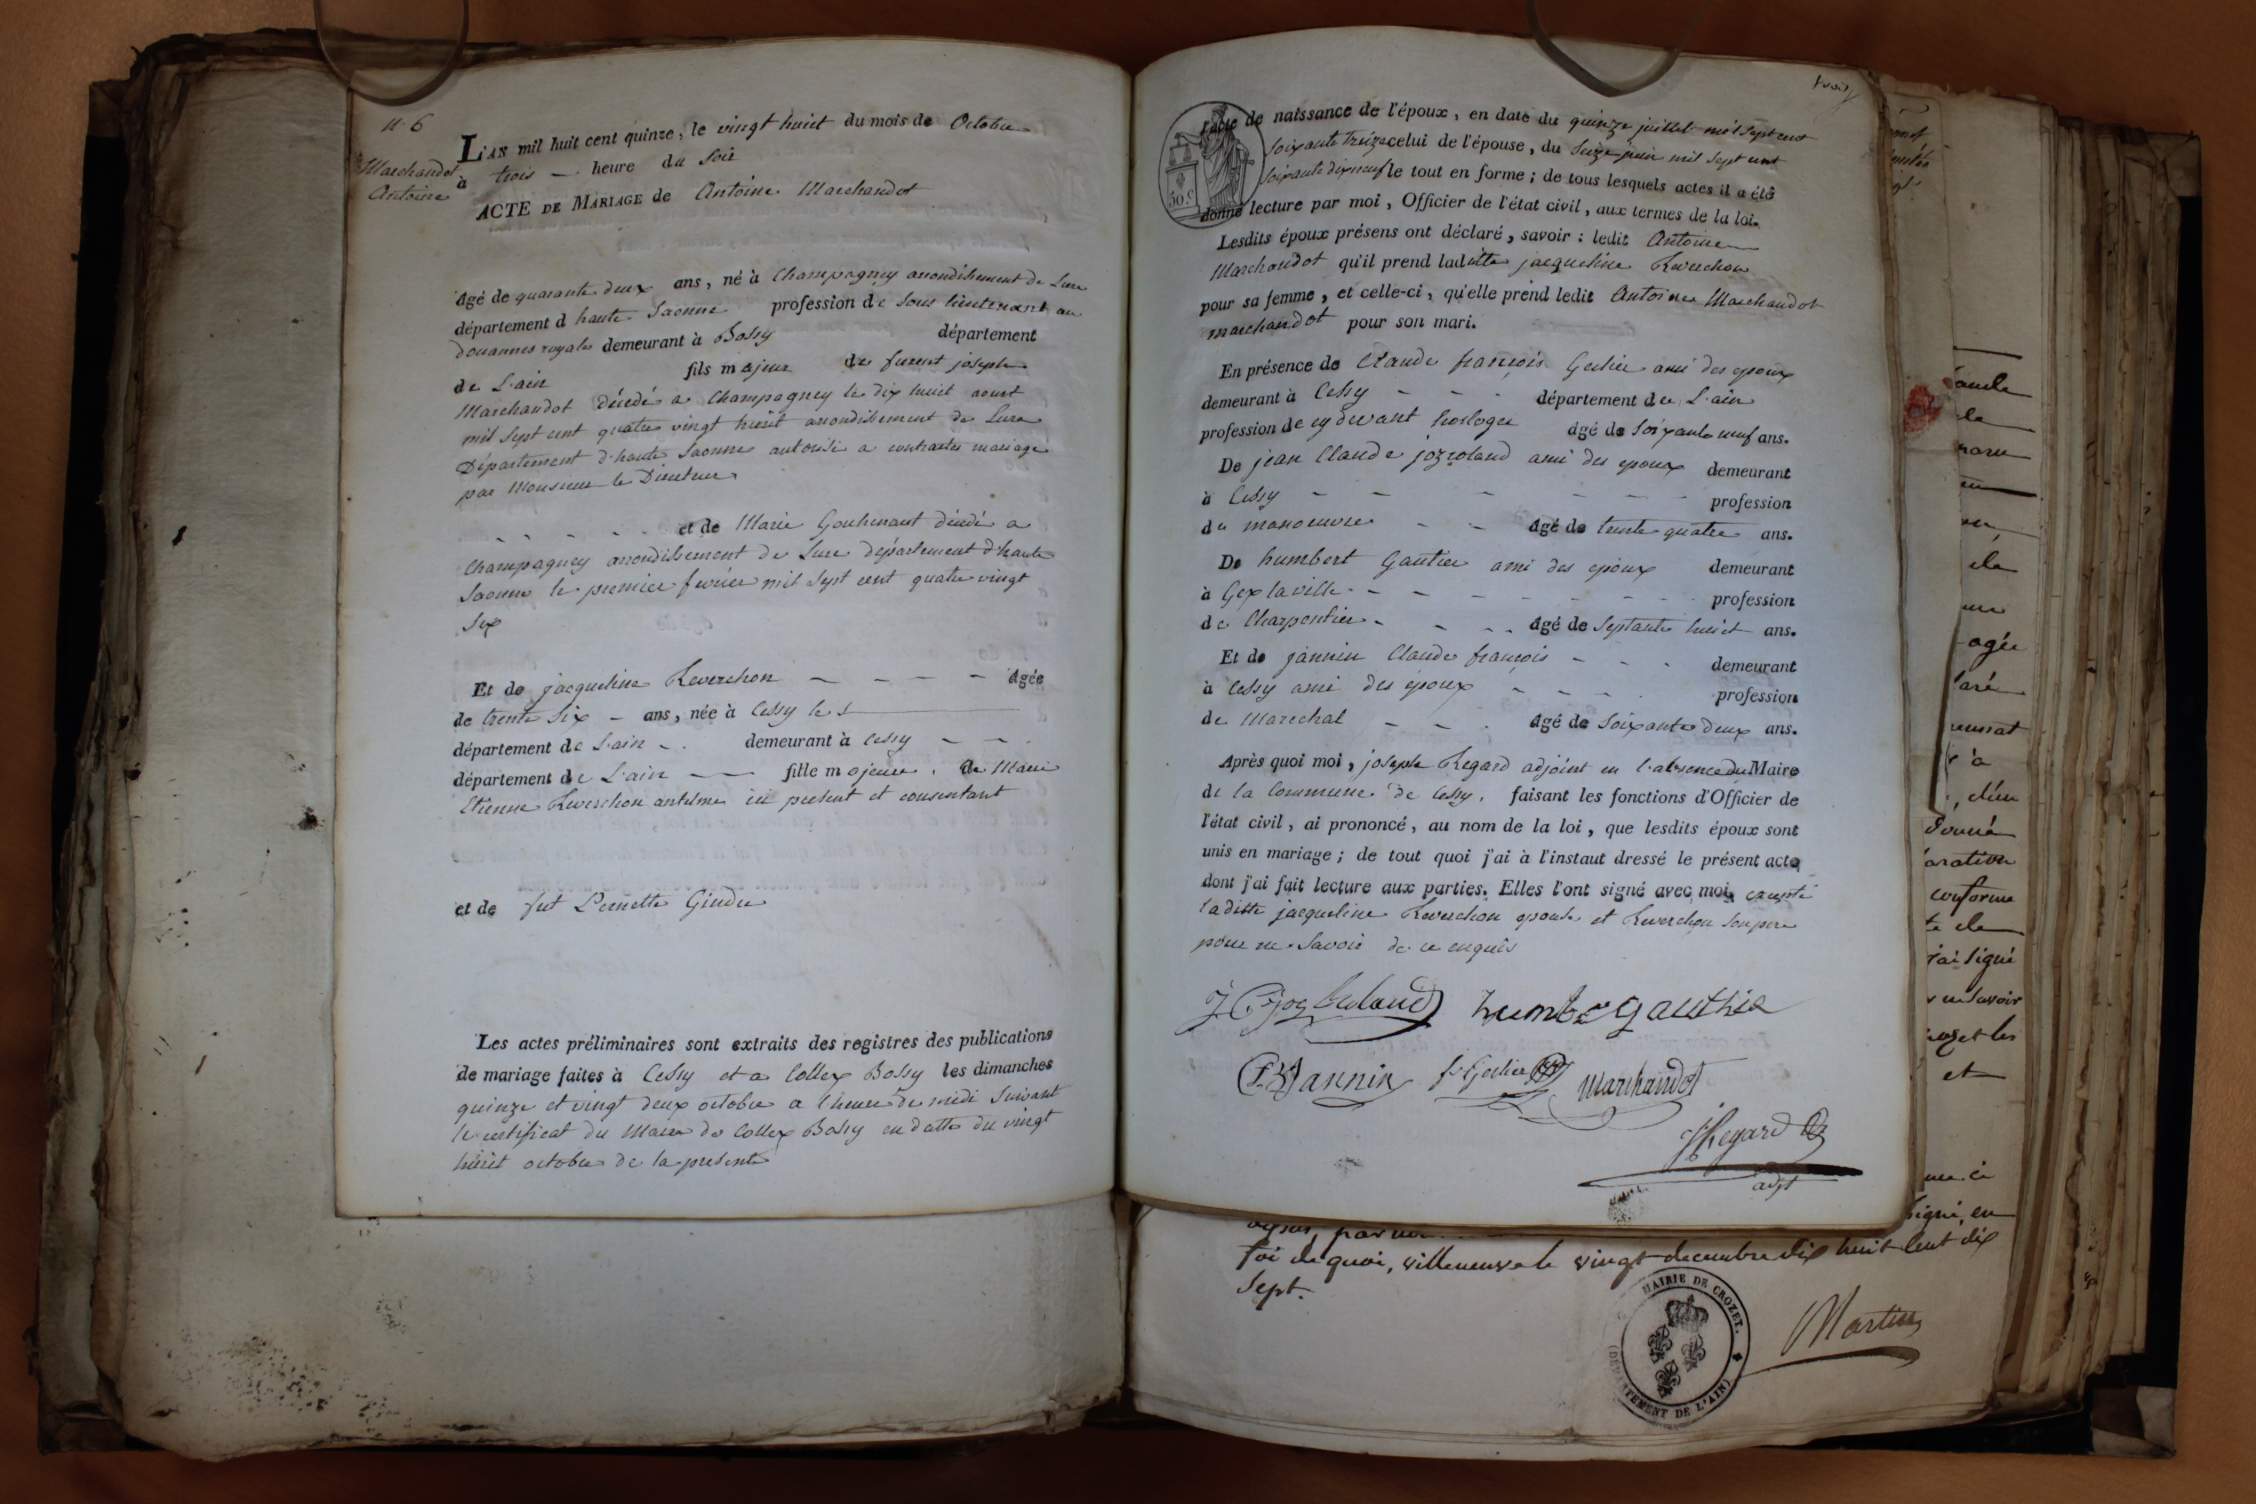 n. 6
Marchandot
Antoine
L'AN mil huit cent quinze, le vingt huict du mois de Octobre
à trois — heure du Soir
ACTE DE MARIAGE de Antoine Marchandot
Agé de quarante deux ans, né à Champagney arrondissement de Lure
département d haute Saonne profession de Sous lieutenant au
douannes royales demeurant à Bossy département
de L'ain fils majeur de furent joseph
Marchandot décédé a Champagney le dix huit aout
mil sept cent quatre vingt huit arrondissement de Lure
Département d'haute Saonne autorisé a contracter mariage
par Monsieur le Directeur
et de Marie Gouhenant décédé a
Champagney arrondissement de Lure département d'haute
Saonne le premier fevrier mil sept cent quatre vingt
Six
Et de jacqueline Reverchon — — — — Agée
de trente six — ans, née à Cessy le
département de L'ain demeurant à Cessy — —
département de L'ain — fille majeure de
Etienne Reverchon ici present et consentant
et de fut Pernette Gindre
Les actes préliminaires sont extraits des registres des publications
de mariage faites à Cessy et a Collex Bossy les dimanches
quinze et vingt deux octobre a l'heure de midi Suivant
le certificat du Maire de Collex Bossy en datte du vingt
huit octobre de la presente
l'acte de naissance de l'époux, en date du quinze juillet mil sept cent
soixante treize celui de l'épouse, du Seize juin mil sept cent
soixante dix neuf le tout en forme ; de tous lesquels actes il a été
donné lecture par moi, Officier de l'état civil, aux termes de la loi.
50 c
Lesdits époux présens ont déclaré, savoir : ledit Antoine
Marchandot qu'il prend laditte jacqueline Reverchon
pour sa femme, et celle-ci, qu'elle prend ledit Antoine Marchandot
marchandot pour son mari.
En présence de Claude françois Gerlier ami des epoux
demeurant à Cessy — — département de L'ain
profession de cy devant horloger âgé de Soixante neuf ans.
De jean Claude ami des epoux demeurant
à Cessy — — — — profession
de manoeuvre — — Agé de trente quatre ans.
De humbert Gautier ami des epoux demeurant
à Gex la ville — — — profession
de Charpentier — — Agé de Septante huict ans.
Et de jannin Claude françois — — demeurant
à Cessy ami des époux — — profession
de Marechal — — Agé de Soixante deux ans.
Après quoi moi, joseph Regard adjoint en l'absence du Maire
de la Commune de Cessy, faisant les fonctions d'Officier de
l'état civil, ai prononcé, au nom de la loi, que lesdits époux sont
unis en mariage ; de tout quoi j'ai à l'instaut dressé le présent acte,
dont j'ai fait lecture aux parties. Elles l'ont signé avec moi, excepté
laditte jacqueline Reverchon epouse et Reverchon son pere
pour ne Savoir de ce enquis
humbert gauthier
Jannin
Marchandot
J Regard
adjt
foi de quoi, villeneuve le vingt decembre dix huit cent dix
sept.
MAIRIE DE CROZET.
(DÉPARTEMENT DE L'AIN)
Martin
agée
donné
conforme
j'ai signé
et
signé, en